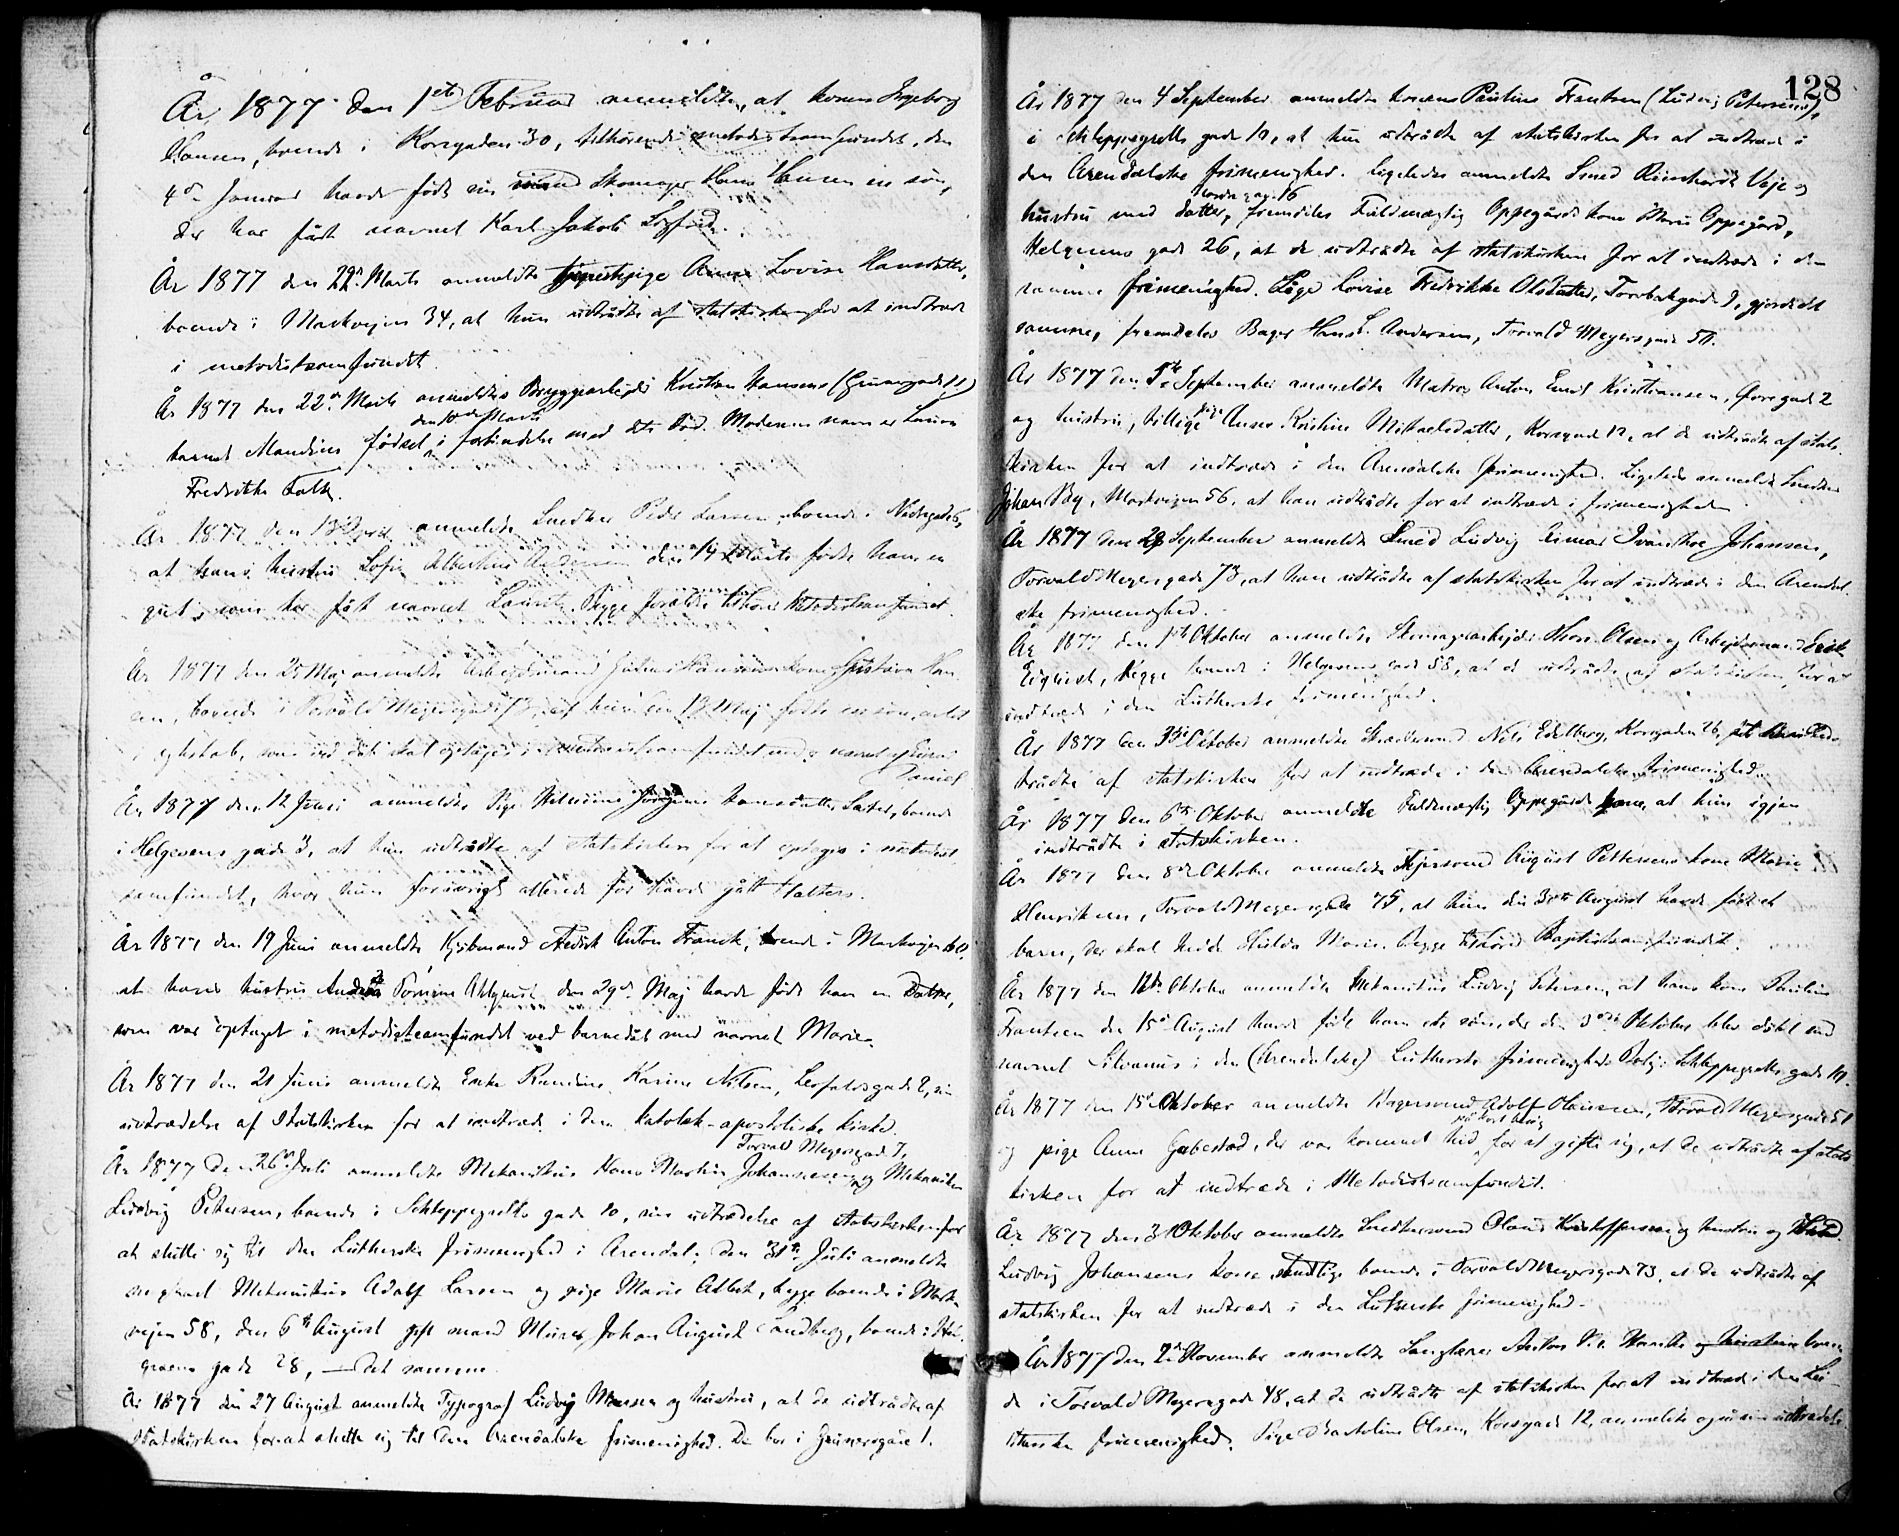 År 1877 den 1ste Februar anmeldte, at konen Ingeborg
Hansen, boende i Korsgaden 30, tilhørende metodistsamfundet, den
4de Januar havde født sin mand Skomager Hans Hansen en søn,
der har fået navnet Karl Jakob Sigfrid.
År 1877 den 22de Marts anmeldte tjenestepige Anna Lovise Hansdatter,
boende i Markvejen 34, at hun udtrådte af statskirken for at indtræde
i metodistsamfundet.
År 1877 den 22de Marts anmeldtes Bryggearbejder Kristian Hansens (Grunersgade 11)
den Marts
barnet Mandius fødsel i forbindelse med dets Død. Moderens navn er Lovise
Fredrikke Falk.
År 1877 den 13 April anmeldte Snedker Peder Larsen, boende i Nedregade 6,
at hans hustru Sofie Albertine Andersen den 14 Marts fødte ham en
gut, som har fått navnet Lauritz. Begge forældre tilhører Metodistsamfundet.
År 1877 den 25 Maj anmeldte Arbejdsmand Julius Hansens kone Gustava Han-
sen, boende i Torvald Mejersgade 73, at hun den 13 Maj fødte en søn, avlet
i egteskab, som ved dåb skal optages i metodistsamfundet med navnet Einar
Daniel
År 1877 den 12 Juni anmeldte Pige Vilhelmine Jørgine Hansdatter Sæter, boende
i Helgesens gade 3, at hun udtrådte af statskirken for at optages i metodist-
samfundet, hvor hun forøvrigt allerede før havde gått til alters.
År 1877 den 19 Juni anmeldte Kjøbmand Fredrik Anton Franck, boende i Markvejen 60,
at hans hustru Andrea Tomine Ahlquist den 29de Maj havde født ham en Datter,
som var optaget i metodistsamfundet ved barnedåb med navnet Marie.
År 1877 den 21 Juni anmeldte Enke Randine Karine Nilsen, Leirfaldsgade 2, sin
udtrædelse af Statskirken for at indtræde i den katolsk-apostoliske kirke.
Torvald Meyersgade 7,
År 1877 den 26de Juli anmeldte Mekanikus Hans Martin Johannesen og Mekanikus
Ludvig Petersen, boende i Schleppegrells gade 10, sin udtrædelse af statskirken for
at slutte sig til den Lutherske frimenighed i Arendal; den 31te Juli anmeldte
Mekanikus Adolf Larsen og pige Marie Albek, begge boende i Mark-
vejen 58, den 6te August gift mand Murer Johan August Sandberg, boende i Hel-
gesens gade 28, — det samme.
År 1877 den 27 August anmeldte Typograf Ludvig Monsen og hustru, at de udtrådte af
Statskirken for at slutte sig til den Arendalske frimenighed. De bor i Grunersgade 1.
128
År 1877 den 4 September anmeldte konen Pauline Frantsen (Ludvig Petersens),
i Schleppegrells gade 10, at hun udtrådte af statskirken for at indtræde i
den Arendalske frimenighed. Ligeledes anmeldte Smed Reinhardt Veje og
hustru med datter, fremdeles Fuldmægtig Oppegårds kone Marie Oppegård,
Helgesens gade 26, at de udtrådte af statskirken for at indtræde i den
samme frimenighed. Pige Lovise Fredrikke Olsdatter, Torvbakgade 9, gjorde det
samme, fremdeles Bager Hans L. Andersen, Torvald Meyersgade 50.
År 1877 den 7de September anmeldte Matros Anton Emil Kristiansen, Fossgade 2
og hustru, tillige pige Anne Kristine Mikaelsdatter, Korsgade 12, at de udtrådte af stats-
kirken for at indtræde i den Arendalske frimenighed. Ligeledes anmeldte Snedker
Johan By, Markvejen 56, at han udtrådte for at indtræde i frimenigheden.
År 1877 den 28 September anmeldte Smed Ludvig Einar Ivanhoe Johansen,
Torvald Meyersgade 73, at han udtrådte af statskirken for at indtræde i den Arendal-
ske frimenighed.
År 1877 den 1ste Oktober anmeldte Steinagearbejder Thore Olsen og Arbejdsmand Erik
Enquist, begge boende i Helgesens gade 58, at de udtrådte af statskirken, for at
indtræde i den Lutherske frimenighed.
År 1877 den 3die Oktober anmeldte Skræddersvend Nils Edelberg, Korsgaden 26, at han ud-
trådte af statskirken for at indtræde i den Arendalske frimenighed.
År 1877 den 6te Oktober anmeldte Fuldmægtig Oppegårds kone, at hun igjen
indtrådte i statskirken.
År 1877 den 8de Oktober anmeldte Fejersvend August Pettersens kone Marie
Henriksen, Torvald Meyersgade 75, at hun den 30te August havde født et
barn, der skal hede Hulda Marie. Begge tilhører Baptistsamfundet.
År 1877 den 12te Oktober anmeldte Mekanikus Ludvig Petersen, at hans kone Pauline
Frantsen den 15de August havde født ham en søn, der den 3die Oktober blev døbt med
navnet Silvanus i den (Arendalske) Lutherske frimenighed. Bolig: Schleppegrells gade 10.
År 1877 den 15de Oktober anmeldte Bagersvend Adolf Olaussen, Torvald Meyersgade 51
på kort besøg
og pige Anne Gabestad, der var kommet hid for at gifte sig, at de udtrådte af stats-
kirken for at indtræde i Metodistsamfundet.
År 1877 den 31 Oktober anmeldte Snedkersvend Olaus Kristoffersen og hustru og Smed
Ludvig Johansens kone, samtlige boende i Torvald Meyersgade 73, at de udtrådte af
statskirken for at indtræde i den Lutherske frimenighed.
År 1877 den 2de November anmeldte Sanglærer Anton V. og hustru boen-
de i Torvald Meyersgade 48, at de udtrådte af statskirken for at indtræde i den Lu-
therske frimenighed. Pige Bartoline Olsen, Korsgade 12, anmeldte også sin udtrædelse